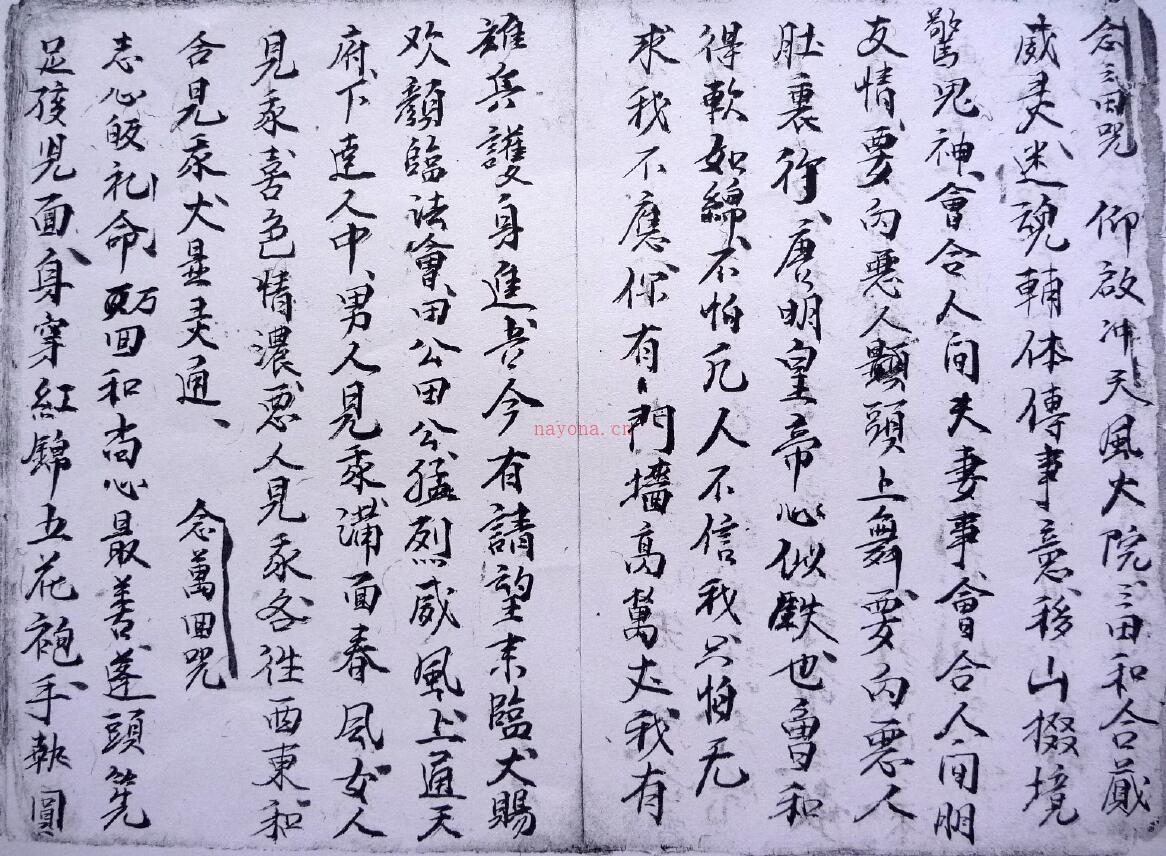 念三田咒 仰啟冲天風火院三田和合藏
威灵迷魂輔体傳事意移山掇境
驚鬼神會合人間夫妻事會合人間朋
友情要向惡人顛頭上舞要向惡人
肚裏行唐明皇帝心似鉄也曾和
得軟如綿不怕凡人不信我只怕无
求我不應你有丶門墻高萬丈我有
雄兵護身進吾今有請望来臨大賜
欢顏臨法會田公田公猛烈威風上通天
府下達人中男人見汞滿面春風女人
見汞喜色情濃惡人見汞各徃西東和
合見汞大显灵通
念萬回咒
志心皈礼命万回和尚心最善蓬頭跣
足孩児面身穿紅錦五花袍手執圓
nayona.cn